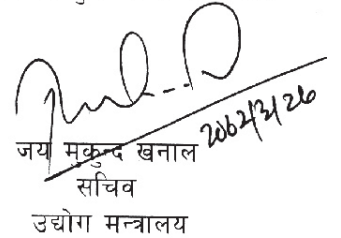 जय मुकुन्द खनाल 2062/3/26
सचिव
उद्योग मन्त्रालय